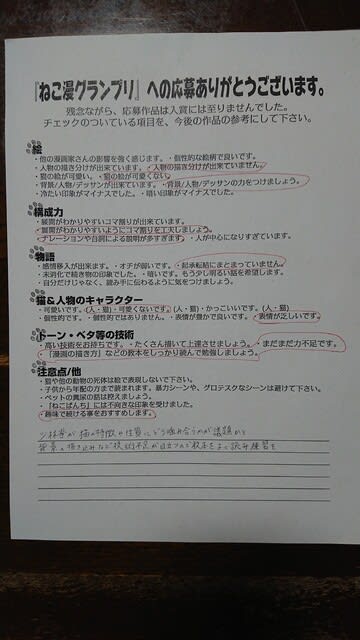 『ねこ漫グランプリ』への応募ありがとうございます。
残念ながら、応募作品は入賞には至りませんでした。
チェックのついている項目を、今後の作品の参考にして下さい。
絵
・他の漫画家さんの影響を強く感じます。・個性的な絵柄で良いです。
・人物の描き分けが出来ています。・人物の描き分けが出来ていません。
・猫の絵が可愛い。・猫の絵が可愛くない。
・背景/人物/デッサンが出来ています。・背景/人物/デッサンの力をつけましょう。
・冷たい印象がマイナスでした。・暗い印象がマイナスでした。
構成力
・展開がわかりやすいコマ割りが出来ています。
・展開がわかりやすいようにコマ割りを工夫しましょう。
・ナレーションや台詞による説明が多すぎます。・人が中心になりすぎています。
物語
・感情移入が出来ます。・オチが弱いです。・起承転結にまとまっていません。
・未消化で描き物の印象でした。・暗いです。もう少し明るい話を希望します。
・自分だけじゃなく、読み手に伝わるように気をつけましょう。
猫&人物のキャラクター
・可愛いです。(人・猫)・可愛くないです。(人・猫)・かっこいいです。(人・猫)
・個性的です。・個性的ではありません。・表情が豊かで良いです。・表情が乏しいです。
トーン・ベタ等の技術
・高い技術をお持ちです。・たくさん描いて上達させましょう。・まだまだ力不足です。
・「漫画の描き方」などの教本をしっかり読んで勉強しましょう。
注意点/他
・猫や他の動物の死体は絵で表現しないで下さい。
・子供から年配の方まで読まれます。暴力シーンや、グロテスクなシーンは避けて下さい。
・ペットの糞尿の話は控えましょう。
・「ねこぱんち」には不向きな印象を受けました。
・趣味で続ける事をおすすめします。
少林寺が猫の特徴や性質にどう噛み合うのかが議題かと